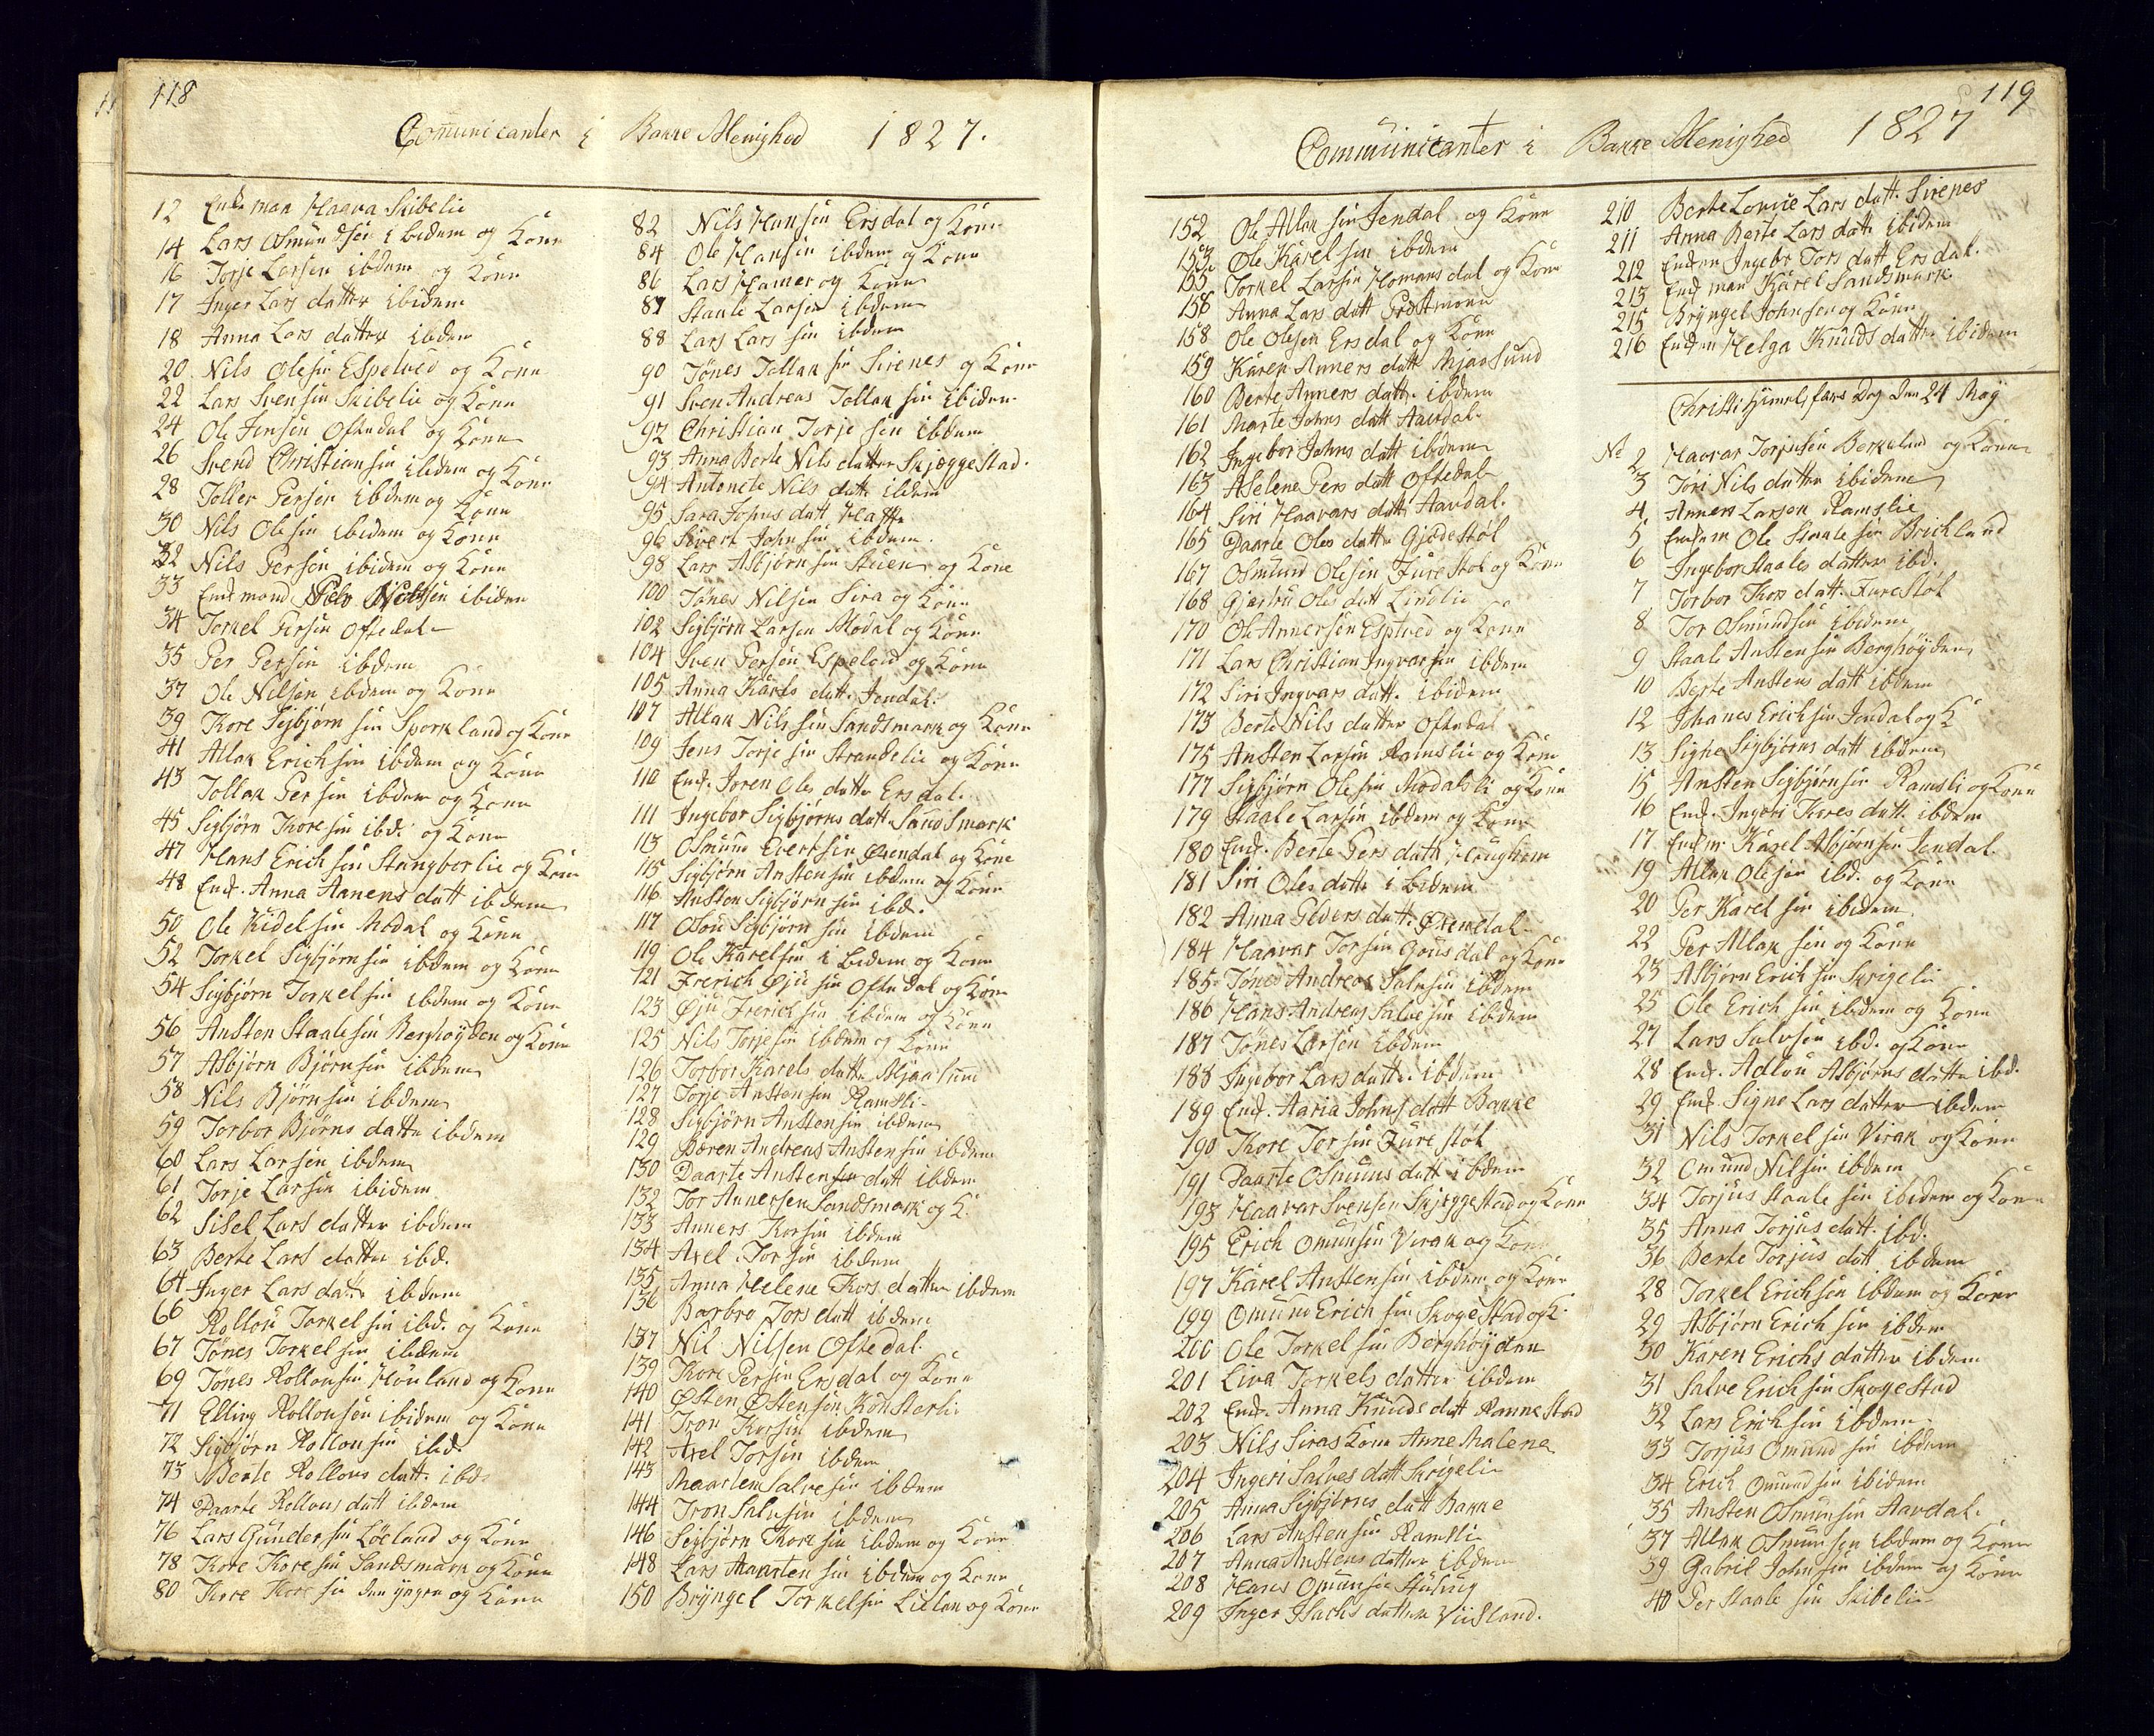 118
Communicanter i Bakke Menighed 1827.
12 Enke man Haava Skibelie
14 Lars Osmundsen ibidem og Kone
16 Torje Larsen ibdem og Kone
17 Inger Lars datter ibidem
18 Anna Lars datter ibdem
20 Nils Olesin Espelved og Kone
22 Lars Svensin Skibelie og Kone
24 Ole Jensen Oftedal og Kone
26 Svend Christiansin ibidem og Kone
28 Toller Persen ibdem og Kone
30 Nils Olesin ibidem og Kone
32 Nils Persen ibidem og Kone
33 Enke mand ibiden
34 Torkel Persin Oftedal
35 Per Persin ibdem
37 Ole Nilsen ibdem og Kone
39 Tore Sigbjørn sin Sporkland og Kone
41 Atlak Erichsin ibdem og Kone
43 Tollak Persin ibdem og Kone
45 Sigbjørn Thore sin ibd. og Kone
47 Hans Erich sin Stangborlie og Kone
48 Enk. Anna Aanens datt ibdem
50 Ole Kidelsin Modal og Kone
52 Torkel Sigbjørnsin ibdem og Kone
54 Sigbjørn Torkelsin ibdem og Kone
56 Ansten Staalesin Berghøyden og Kone
57 Asbjørn Bjørnsin ibdem
58 Nils Bjørnsin ibdem
59 Torbor Bjørns datte ibdem
60 Lars Larsen ibdem
61 Torje Larsin ibidem
62 Sisel Lars datter ibdem
63 Berte Lars datter ibd.
64 Inger Lars datte ibdem
66 Rollou Torkel sin ibd. og Kone
67 Tønes Torkel sin ibdem
69 Tønes Rollousin Houland og Kone
71 Elling Rollousen ibidem og Kone
72 Sigbjørn Rollousin ibd.
73 Berte Rollous datt. ibd.
74 Daarte Rollous datt ibdem
76 Lars Gundersin Løeland og Kone
78 Thore Thoresin Sandsmark og Kone
80 Thore Thore sin den yngre og Kone
82 Nils Hansin Ersdal og Kone
84 Ole Hansin ibdem og Kone
86 Lars Hamer og Kone
87 Staale Larsen ibdem
88 Lars Lars sin ibdem
90 Tønes Tollak sin Sirenes og Kone
91 Sven Andreas Tollak sin ibidem
92 Christian Torje sin ibdem
93 Anna Berte Nils datter Skjeggestad.
94 Antonete Nils datte ibdem
95 Sara Johns datt
96 Sivert Johnsin ibdem.
98 Lars Asbjørn sin Stuen og Kone
100 Tønes Nilsen Sira og Kone
102 Sigbjørn Larsen Modal og Kone
104 Sven Persen Espeland og Kone
105 Anna Karels datt. Jendal.
107 Atlak Nils sin Sandsmark og Kone
109 Jens Torje sin Strandelie og Kone
110 Enk. Joren Oles datte Ersdal.
111 Ingebor Sigbjørns datt. Sandsmark
113 Osmund Evertsin Øxendal og Kone
115 Sigbjørn Anstensin ibdem og Kone
116 Ansten Sigbjørnsin ibd.
117 Osou Sigbjørn sin ibdem
119 Ole Karelsin ibidem og Kone
121 Frerich Øju sin Oftedal og Kone
123 Øju Frerichsin ibdem og Kone
125 Nils Torjesin ibdem og Kone
126 Torbor Karels datte Mjaasund
127 Torje Anstensin Ramsli
128 Sigbjørn Anstensin ibdem
129 Søren Andreas Anstensin ibdem
130 Daarte Ansten datt ibdem
132 Tor Annersen Sandsmark og K.
133 Anners Torsin ibdem
134 Axel Torsin ibdem
135 Anna Helene Tors datter ibdem
136 Barbro Tors datt ibdem
137 Nil Nilsen Oftedal.
139 Thore Persin Ersdal og Kone
140 Østen Østensøn Konsterli
141 Tron Torsin ibdem
142 Axel Torsin ibdem
143 Maarten Salve sin ibdem
144 Tron Salvesin ibdem
146 Sigbjørn Thore sin ibdem og Kone
148 Lars Maarten sin ibdem og Kone
150 Bryngel Torkelsin Lillan og Kone
119
Communicanter i Bakke Menighed 1827
152 Ole Atlak sin Jendal og Kone
153 Ole Karel sin ibdem
155 Torkel Larsin Homansdal og Kone
156 Anna Lars datt
158 Ole Olesen Ersdal og Kone
159 Karen Anners datt Mjaasund
160 Berte Anners datte ibdem
161 Marte Johns datt Aavdal
162 Ingebor Johns datt ibdem
163 Aselene Pers datt Oftedal
164 Siri Haavars datte Aavdal.
165 Daarte Oles datte Gjædestøl
167 Osmund Olesin Furestøl og Kone
168 Gjertru Oles datt Lindlie
170 Ole Annersen Espeved og Kone
171 Lars Christian Ingvarsin ibdem
172 Siri Ingvars datt. ibidem
173 Berte Nils datter Oftedal
175 Ansten Larsin Ramslie og Kone
177 Sigbjørn Olesin Modalsli og Kone
179 Staale Larsin ibdem og Kone
180 Enk. Berte Pers datte Haughom
181 Siri Oles datte ibidem
182 Anna Elvers datt. Øxendal
184 Haavar Torsin Gousdal og Kone
185 Tønes Andreas Salvesin ibdem
186 Hans Andreas Salve sin ibdem
187 Tønes Larsen ibdem
188 Ingebor Lars datte ibdem
189 Enk. Aaria Johns datt Bakke
190 Thore Torsin Furestøl
191 Daarte Osmuns datt ibdem
193 Haavar Svensen Skjeggestad og Kone
195 Erich Omunsin Virak og Kone
197 Karel Anstensin ibdem og Kone
199 Omund Erich sin Skogestad og K.
200 Ole Torkel sin Berghøyden
201 Liva Torkels datter ibdem
202 Enk. Anna Knuds datt Rannestad
203 Nils Siras Kone Anne Malene
204 Ingeri Salves datt Skrigeli
205 Anna Sigbjørns datt Bakke
206 Lars Anstensin Ramsli
207 Anna Anstens datter ibdem
208 Hans Omunsin
209 Inger Isachs datter Viisland.
210 Berte Lovise Lars datt. Sirenes
211 Anna Berte Lars datte ibidem
212 Enken Ingebr Tors datt Ersdal.
213 Enk man Karel Sandsmark
215 Bryngel Johnsen og Kone
216 Enken Helga Knuds datter ibidem
Christi Himelfars Dag den 24 May
No 2 Haavar Torjusen Berkeland og Kone
3 Tori Nils datter ibidem
4 Anners Larsen Ramslie
5 Enkem Ole Staale sin Brickland
6 Ingebor Staales datter ibd.
7 Torbor Thors datt. Furestøl
8 Tor Osmundsin ibidem
9 Staale Anstensin Berghøyden
10 Berte Anstens datt ibdem
12 Johanes Erichsin Jendal og K
13 Signe Sigbjørns datt ibdem
15 Ansten Sigbjørnsin Ramsli og Kone
16 Enk. Ingeri Tores datt. ibdem
17 Enkm. Karel Asbjørnsin Jendal.
19 Atlak Olesen ibd. og Kone
20 Per Karel sin ibidem
22 Per Atlak sin og Kone
23 Asbjørn Erich sin Skrigeli
25 Ole Erich sin ibdem og Kone
27 Lars Salvesen ibd. og Kone
28 Enk. Adlou Asbjørns datte ibd.
29 Enk. Signe Lars datter ibdem
31 Nils Torkel sin Virak og Kone
32 Omund Nilsin ibdem
34 Torjus Staale sin ibidem og Kone
35 Anna Torjus datt. ibd.
36 Berte Torjus datt ibdem
28 Torkel Erichsen ibdem og Kone
29 Asbjørn Erich sin ibdem
30 Karen Erichs datter ibdem
31 Salve Erich sin Skogestad
32 Lars Erichsin ibdem
33 Torjus Omund sin ibdem
34 Erich Omundsin ibidem
35 Ansten Osmunsin Aavdal.
37 Atlak Osmunsen ibdem og Kone
39 Gabriel Johnsin ibdem og Kone
40 Per Staale sin Skibelie